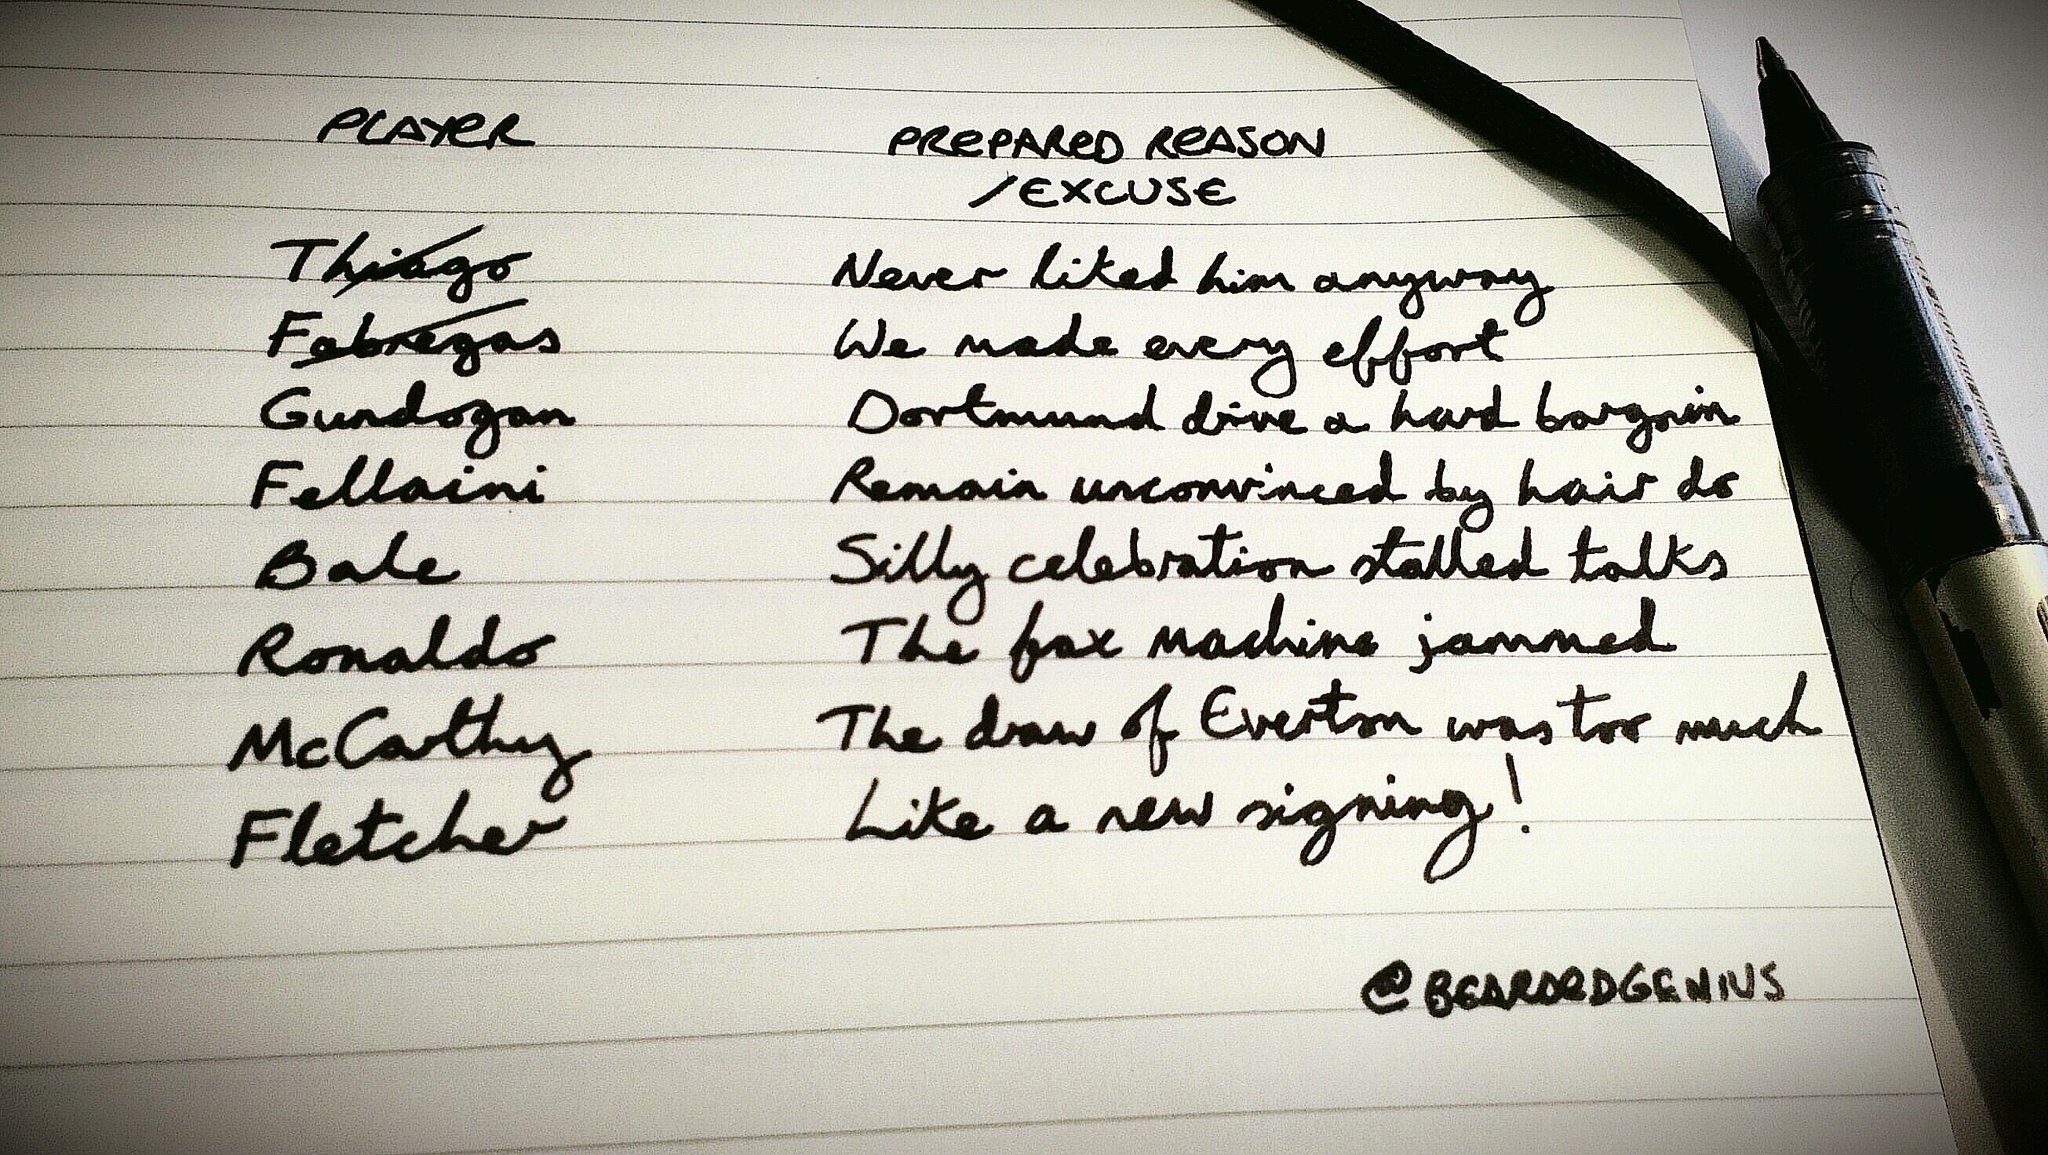 PLAYER PREPARED REASON
/EXCUSE
Thiago Never liked him anyway
Fabregas We made every effort
Gundogan Dortmund drive a hard bargain
Fellaini Remain unconvinced by hair do
Bale Silly celebration stalled talks
Ronaldo The fax machine jammed
McCarthy The draw of Everton was too much
Fletcher Like a new signing!
@BEARDEDGENIUS